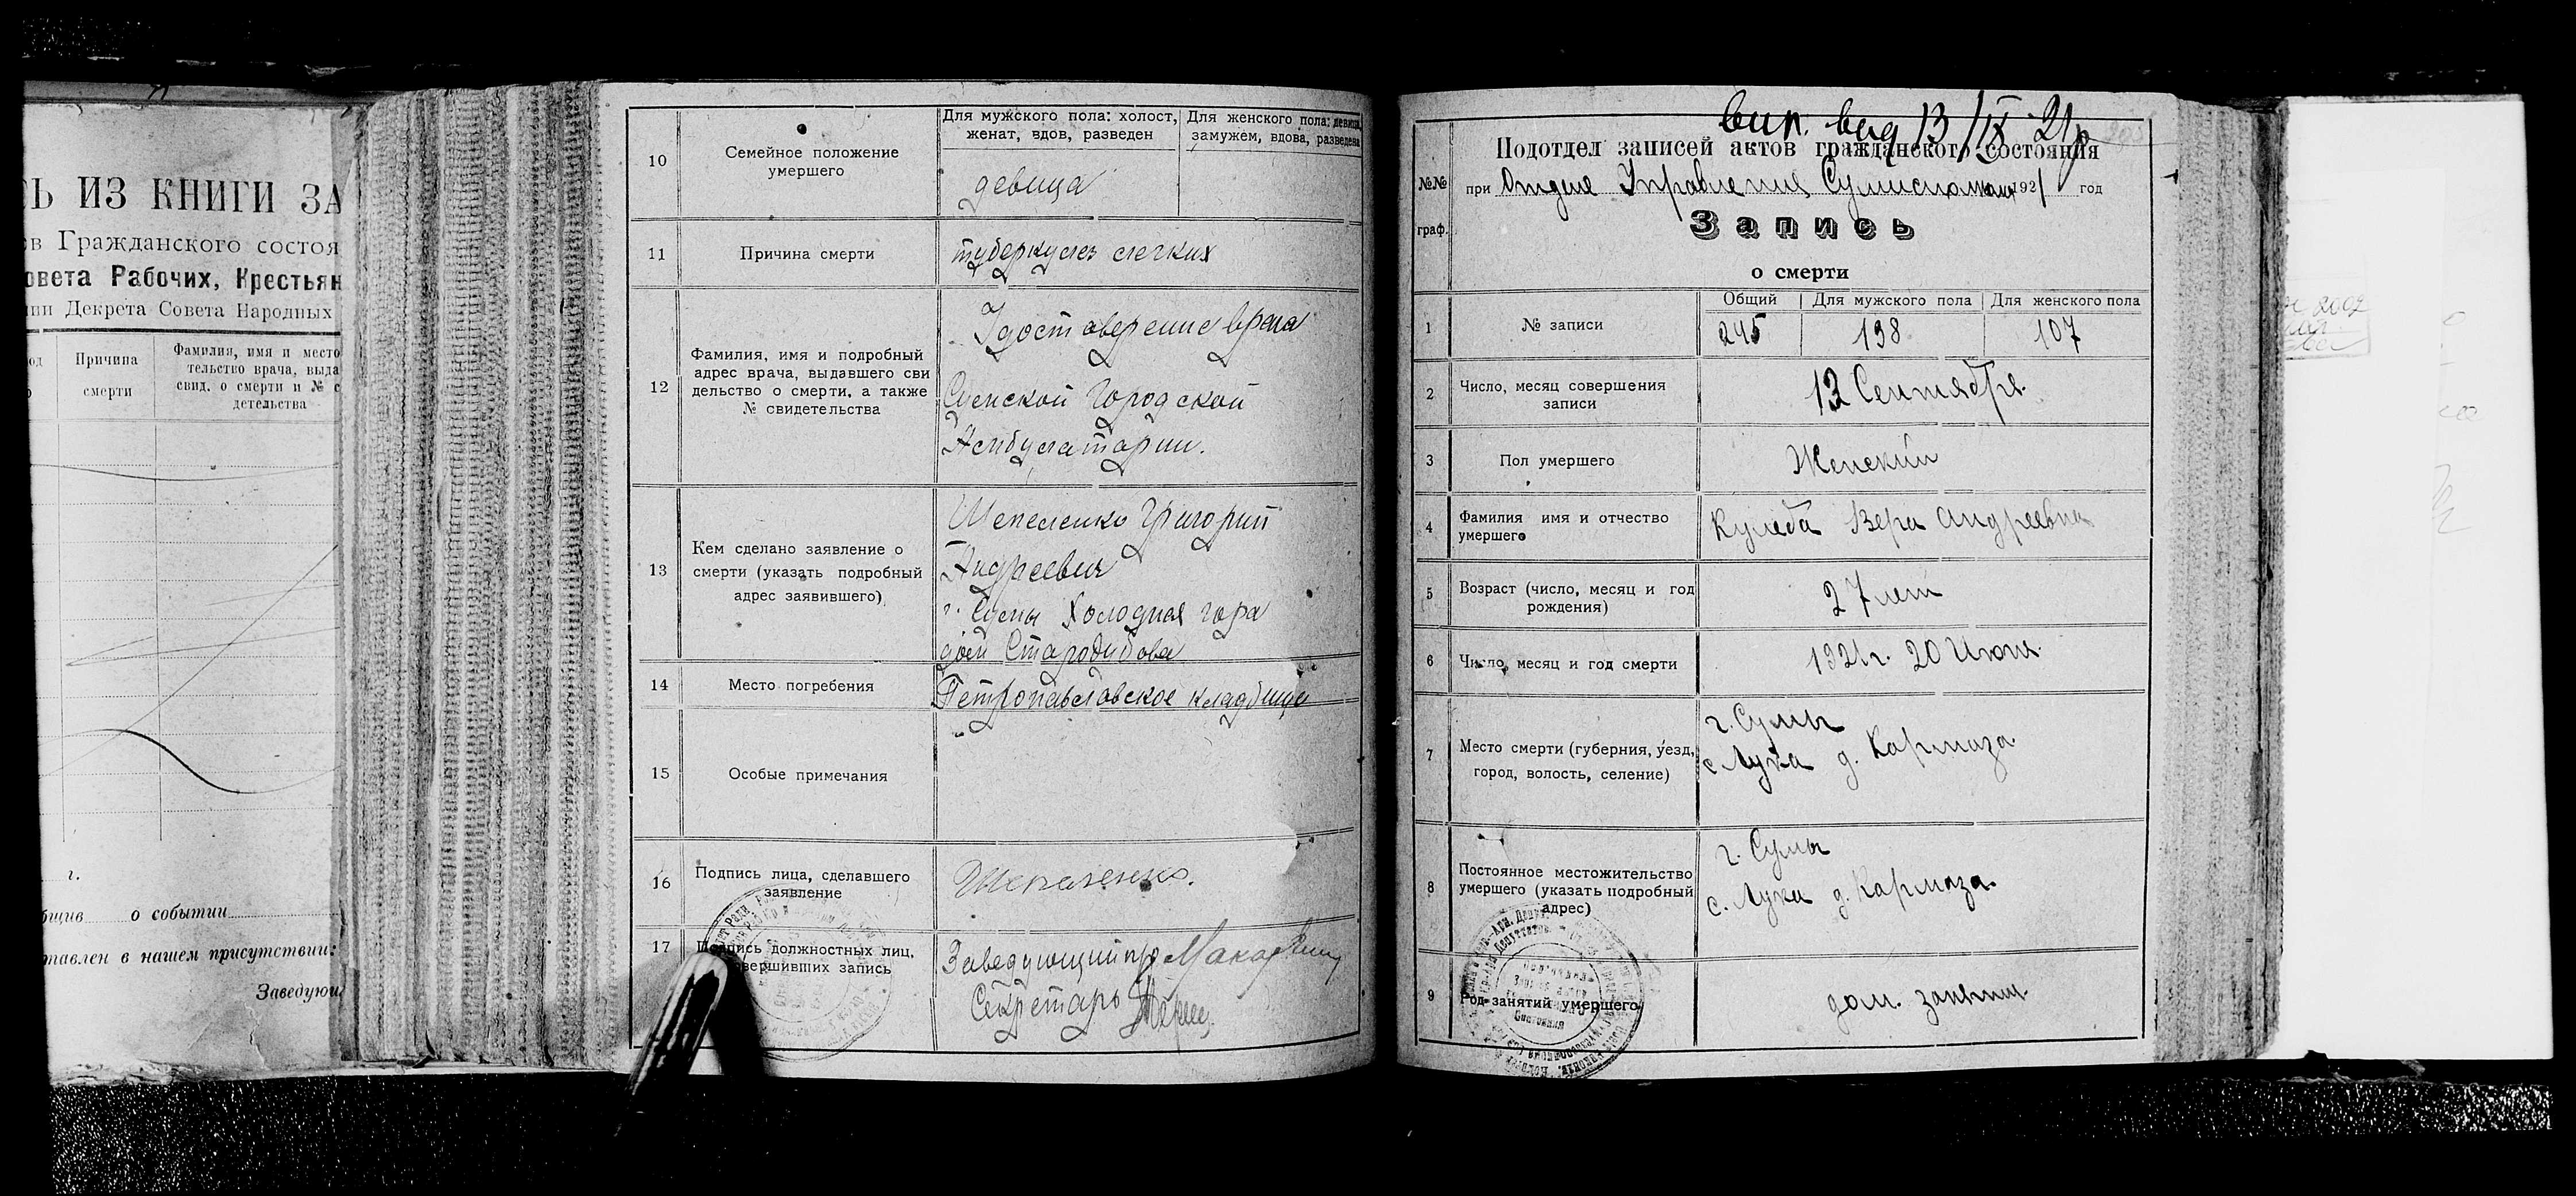 Ь ИЗ КНИГИ ЗА
ов Гражданского состоя
овета Рабочих, Крестьян
нии Декрета Совета Народных
Причина
смерти
Фамилия, имя и место
тельство врача, выда
свид. о смерти и № с
детельства
г.
бщив о событии
тавлен в нашем присутствии:
Заведую
10
Семейное положение
умершего
Для мужского пола: холост,
женат, вдов, разведен
Для женского пола: девица,
замужем, вдова, разведена
девица
11
Причина смерти
туберкулез легких
12
Фамилия, имя и подробный
адрес врача, выдавшего сви
дельство о смерти, а также
№ свидетельства
Удостоверение врача
Сумской Городской
Амбулатории.
13
Кем сделано заявление о
смерти (указать подробный
адрес заявившего)
Шепеленко Григорий
Андреевич
г. Сумы Холодная гора
дом Стародубова
14
Место погребения
Петропавловское кладбище
15
Особые примечания
16
Подпись лица, сделавшего
заявление
Шепеленко.
17
Подпись должностных лиц,
совершивших запись
Заведующий
Секретарь
вип. вид 13/IX 21р
Подотдел записей актов гражданского состояния
№№
граф.
при Отделе Управления 1921 год
Запись
о смерти
1
№ записи
Общий
Для мужского пола
Для женского пола
245
138
107
2
Число, месяц совершения
записи
13 Сентября
3
Пол умершего
Женский
4
Фамилия имя и отчество
умершего
Кулеба Вера Андреевна
5
Возраст (число, месяц и год
рождения)
27 лет
6
Число, месяц и год смерти
1921 г. 20 Июня
7
Место смерти (губерния, уезд,
город, волость, селение)
г. Сумы
с. Лука д. Кармаза
8
Постоянное местожительство
умершего (указать подробный
адрес)
г. Сумы
с. Лука д. Кармаза.
9
Род занятий умершего
дом. занятия